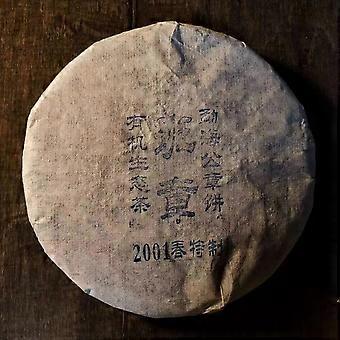 勐海公章饼
班章
有机生态茶
2001春特制